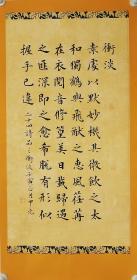 衝淡
素處以默妙機其微飲之太
和獨鶴與飛猶之惠風荏苒
在衣閱音修篁美曰載歸遇
之匪深即之愈希脫有形似
握手已違 二十四詩品之衝淡